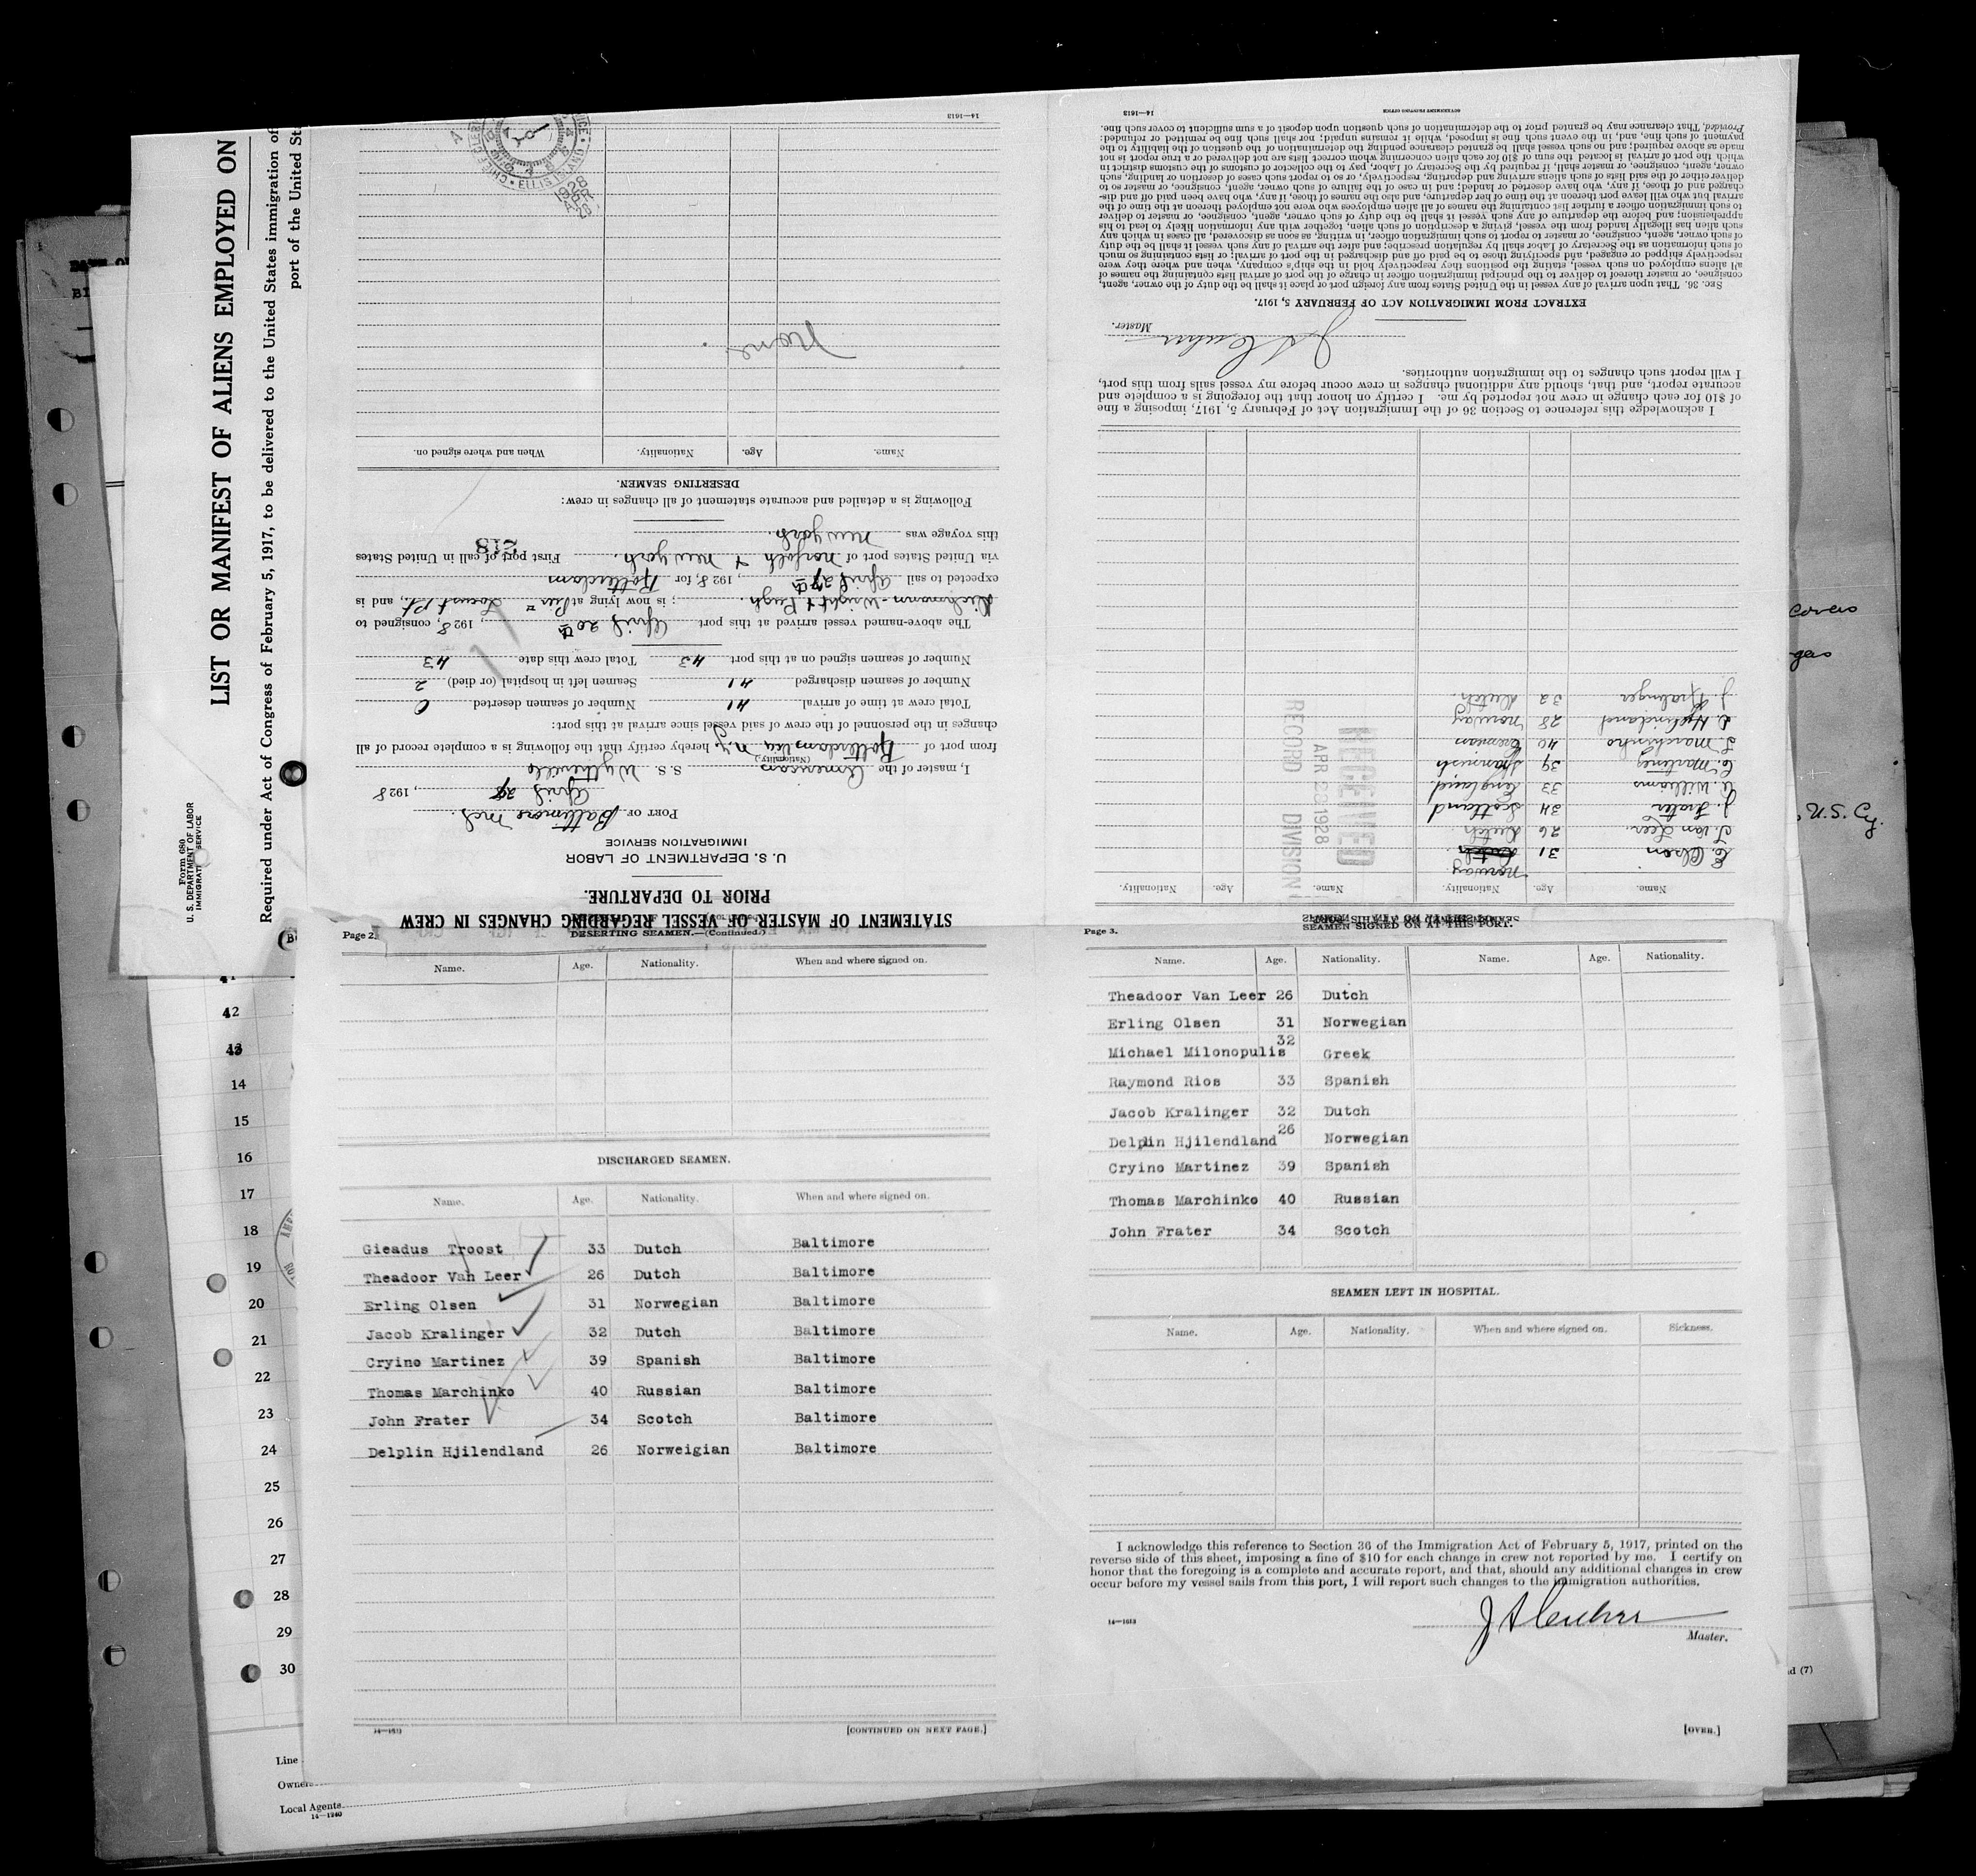 LIST OR MANIFEST OF ALIENS EMPLOYED ON
Required under Act of Congress of February 5, 1917, to be delivered to the United States immigration of
port of the United Sta
Form 680
U. S. DEPARTMENT OF LABOR
IMMIGRATION SERVICE
STATEMENT OF MASTER OF VESSEL REGARDING CHANGES IN CREW
PRIOR TO DEPARTURE.
U. S. DEPARTMENT OF LABOR
IMMIGRATION SERVICE
PORT OF Baltimore Md.
April 27, 1928
I, master of the American S. S. Wytheville
(Nationality.)
from port of Rotterdam via N.Y., hereby certify that the following is a complete record of all
changes in the personnel of the crew of said vessel since arrival at this port:
Total crew at time of arrival 41 Number of seamen deserted 0
Number of seamen discharged 41 Seamen left in hospital (or died) 2
Number of seamen signed on at this port 43 Total crew this date 43
The above-named vessel arrived at this port April 20th, 1928, consigned to
Dichmann-Wright & Pugh; is now lying at Pier Locust Pt., and is
expected to sail April 27th, 1928, for Rotterdam
via United States port of Norfolk & New York. First port of call in United States
this voyage was New York.
218
Following is a detailed and accurate statement of all changes in crew:
DESERTING SEAMEN.
Name. Age. Nationality. When and where signed on.
None
14—1613
CHIEF CLERK
ELLIS ISLAND
1928
Name. Age. Nationality. Name. Age. Nationality.
E. Olsen 31 Norway
T. Van Leer 26 Dutch
J. Frater 34 Scotland
A. Williams 33 England
C. Martinez 39 Spanish
T. Marchinko 40
D. Hjelindland 28 Norway
J. Kralinger 32 Dutch
RECEIVED
APR 28 1928
RECORD DIVISION
I acknowledge this reference to Section 36 of the Immigration Act of February 5, 1917, imposing a fine
of $10 for each change in crew not reported by me. I certify on honor that the foregoing is a complete and
accurate report, and that, should any additional changes in crew occur before my vessel sails from this port,
I will report such changes to the immigration authorities.
Master.
EXTRACT FROM IMMIGRATION ACT OF FEBRUARY 5, 1917.
SEC. 36. That upon arrival of any vessel in the United States from any foreign port or place it shall be the duty of the owner, agent,
consignee, or master thereof to deliver to the principal immigration officer in charge of the port of arrival lists containing the names of
all aliens employed on such vessel, stating the positions they respectively hold in the ship's company, when and where they were
respectively shipped or engaged, and specifying those to be paid off and discharged in the port of arrival; or lists containing so much
of such information as the Secretary of Labor shall by regulation prescribe; and after the arrival of any such vessel it shall be the duty
of such owner, agent, consignee, or master to report to such immigration officer, in writing, as soon as discovered, all cases in which any
such alien has illegally landed from the vessel, giving a description of such alien, together with any information likely to lead to his
apprehension; and before the departure of any such vessel it shall be the duty of such owner, agent, consignee, or master to deliver
to such immigration officer a further list containing the names of all alien employees who were not employed thereon at the time of the
arrival but who will leave port thereon at the time of her departure, and also the names of those, if any, who have been paid off and dis-
charged and of those, if any, who have deserted or landed; and in case of the failure of such owner, agent, consignee, or master so to
deliver either of the said lists of such aliens arriving and departing, respectively, or so to report such cases of desertion or landing, such
owner, agent, consignee, or master shall, if required by the Secretary of Labor, pay to the collector of customs of the customs district in
which the port of arrival is located the sum of $10 for each alien concerning whom correct lists are not delivered or a true report is not
made as above required; and no such vessel shall be granted clearance pending the determination of the question of the liability to the
payment of such fine, and, in the event such fine is imposed, while it remains unpaid; nor shall such fine be remitted or refunded:
Provided, That clearance may be granted prior to the determination of such question upon deposit of a sum sufficient to cover such fine.
14—1613
GOVERNMENT PRINTING OFFICE
Page 2.
DESERTING SEAMEN.—(Continued.)
Name. Age. Nationality. When and where signed on.
DISCHARGED SEAMEN.
Name. Age. Nationality. When and where signed on.
Gieadus Troost 33 Dutch Baltimore
Theadoor Van Leer 26 Dutch Baltimore
Erling Olsen 31 Norwegian Baltimore
Jacob Kralinger 32 Dutch Baltimore
Cryino Martinez 39 Spanish Baltimore
Thomas Marchinko 40 Russian Baltimore
John Frater 34 Scotch Baltimore
Delplin Hjilendland 26 Norweigian Baltimore
14—1613
[CONTINUED ON NEXT PAGE.]
Page 3.
SEAMEN SIGNED ON AT THIS PORT.
Name. Age. Nationality. Name. Age. Nationality.
Theadoor Van Leer 26 Dutch
Erling Olsen 31 Norwegian
Michael Milonopulis 32 Greek
Raymond Rios 33 Spanish
Jacob Kralinger 32 Dutch
Delplin Hjilendland 26 Norwegian
Cryino Martinez 39 Spanish
Thomas Marchinko 40 Russian
John Frater 34 Scotch
SEAMEN LEFT IN HOSPITAL.
Name. Age. Nationality. When and where signed on. Sickness.
I acknowledge this reference to Section 36 of the Immigration Act of February 5, 1917, printed on the
reverse side of this sheet, imposing a fine of $10 for each change in crew not reported by me. I certify on
honor that the foregoing is a complete and accurate report, and that, should any additional changes in crew
occur before my vessel sails from this port, I will report such changes to the immigration authorities.
14—1613
Master.
[OVER.]
42
43
14
15
16
17
18
19
20
21
22
23
24
25
26
27
28
29
30
Line
Owners
Local Agents
14—1240
covers
U.S. Cy.
d (7)